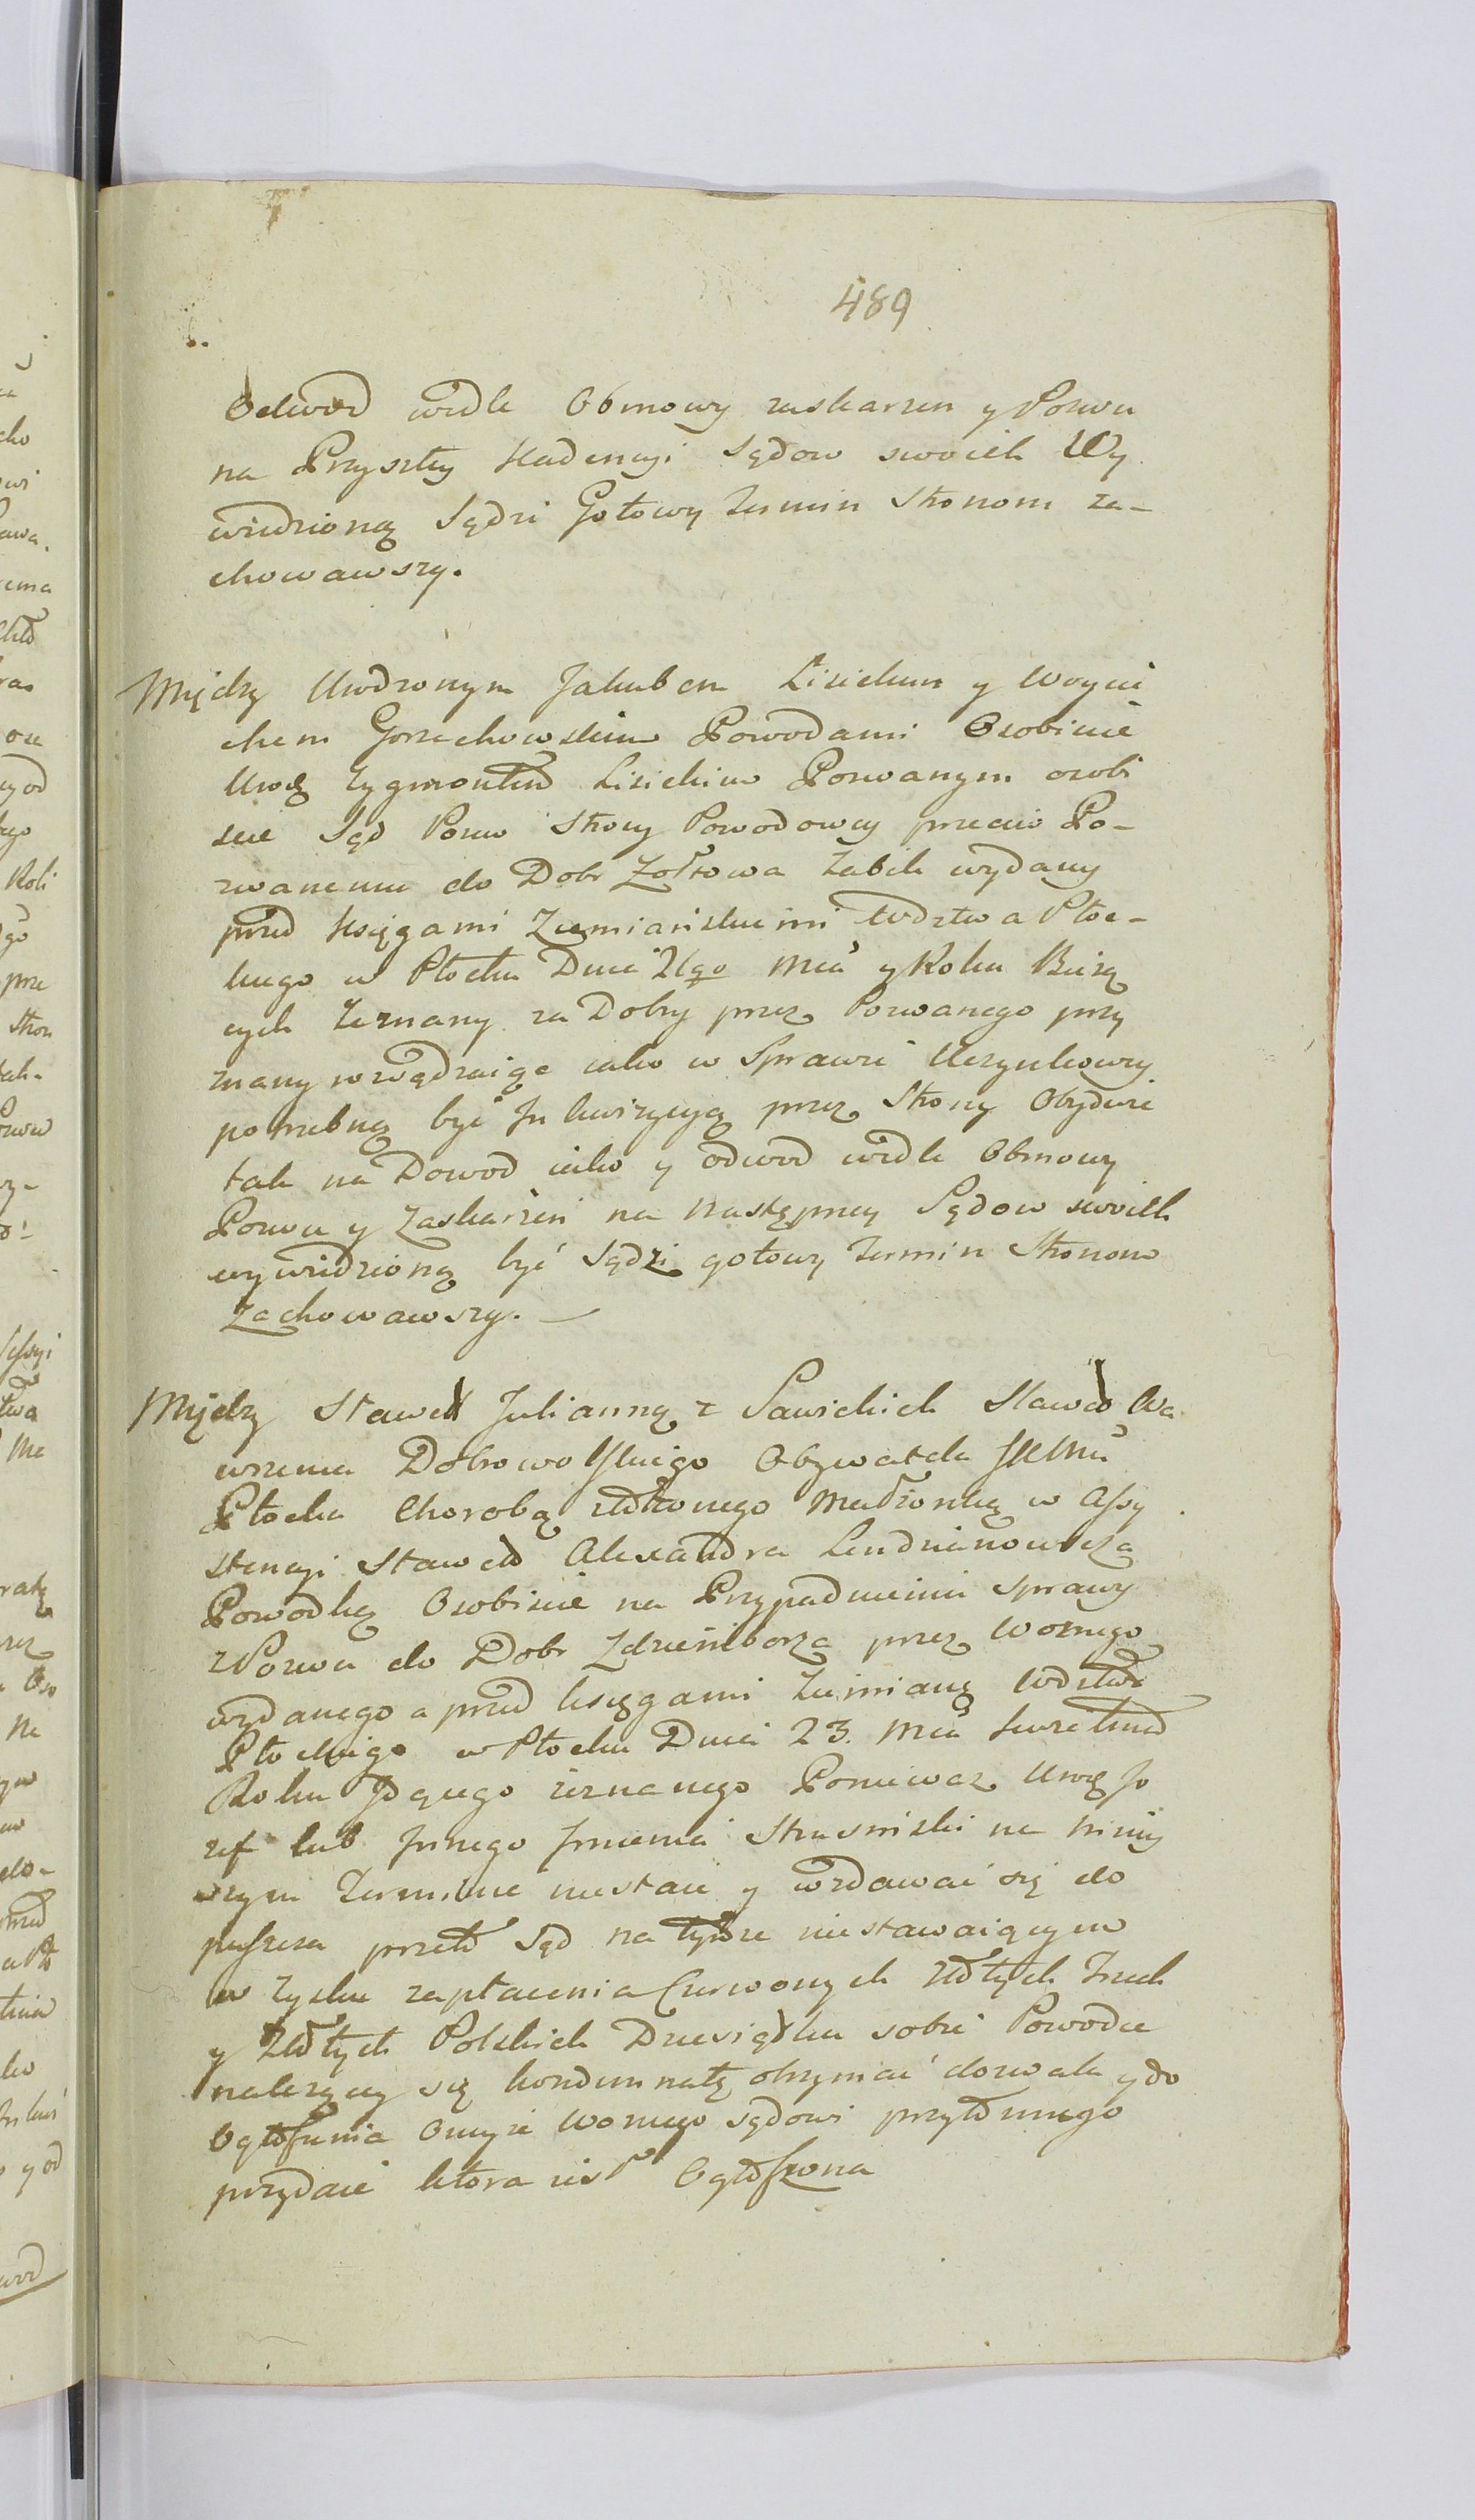 489
Odwod wedle Obmowy zaskarzen y Pozwu
na Przyszłey Kadencyi Sądow swoich Wy
wiedzioną Sądzi Gotowy Termin Stronom za-
chowawszy.
Między Urodzonym Jakubem Lisickim y Woycie
chem Gorzechowskim Powodami Osobiście
Urodz Zygmontem Lisickim Pozwanym osobi
scie Sąd Pozew Strony Powodowey przeciw Po-
zwanemu do Dobr Zołtowa Zabik wydany
przed Ksiągami Ziemiańskiemi Wdztwa Płoc-
kiego w Płocku Dnia 21go Mca y Roku Bieżą
cych Zeznany za Dobry przez Pozwanego przy
znany rozsądzaiąc iako w Sprawie Uczynkowey
potrzebną być Inkwizycyą przez Strony Obydwie
tak na Dowod iako y odwod wedle Obmowy
Pozwu y Zaskarzeń na następney Sądow swoich
wywiedzioną być Sądzi gotowy Termin Stronom
Zachowawszy.
Między Sławetą Julianną z Sawickich Sławetn Wa
wrzenca Dobrowolskiego Obywatela JKMci
Płocka Chorobą złożonego Małżonką w Assy
stencyi Sławetn Alexandra
Powodką Osobiście na Przypadnieniu Sprawy
z Pozwu do Dobr Zdziemborza przez Woznego
wydanego a przed księgami Ziemians Wdztwa
Płockiego w Płocku Dnia 23. Mca Kwietnia
Roku Idącego zeznanego Poniewaz Urodz Jo
zef lub Innego Imienia na niniey
szym Terminie niestaie y wzdawać się do
puszcza przeto Sąd na tymze niestawaiącym
w Zysku zapłacenia Czerwonych Złotych Trzech
y Złotych Polskich Dziesiątku sobie Powodce
należący się kondemnatę otrzymać dozwala y do
Ogłoszenia Onuyze Woznego Sądowi przytomnego
przydaie ktora iest Ogłoszona